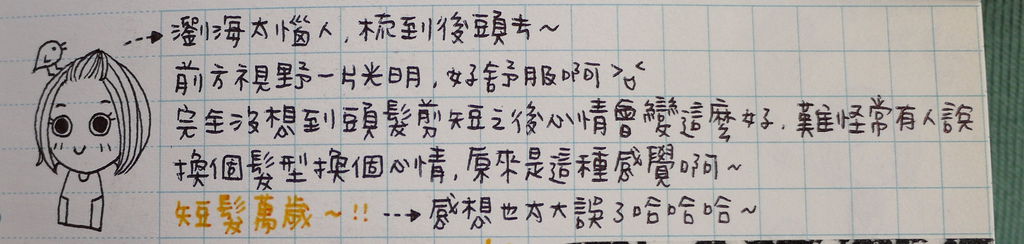 瀏海太惱人，梳到後頭去～
前方視野一片光明，好舒服啊
完全沒想到頭髮剪短之後心情會變這麼好，難怪常有人說
換個髮型換個心情，原來是這種感覺啊～
短髮萬歲～!! 感想也太大誤了哈哈哈～